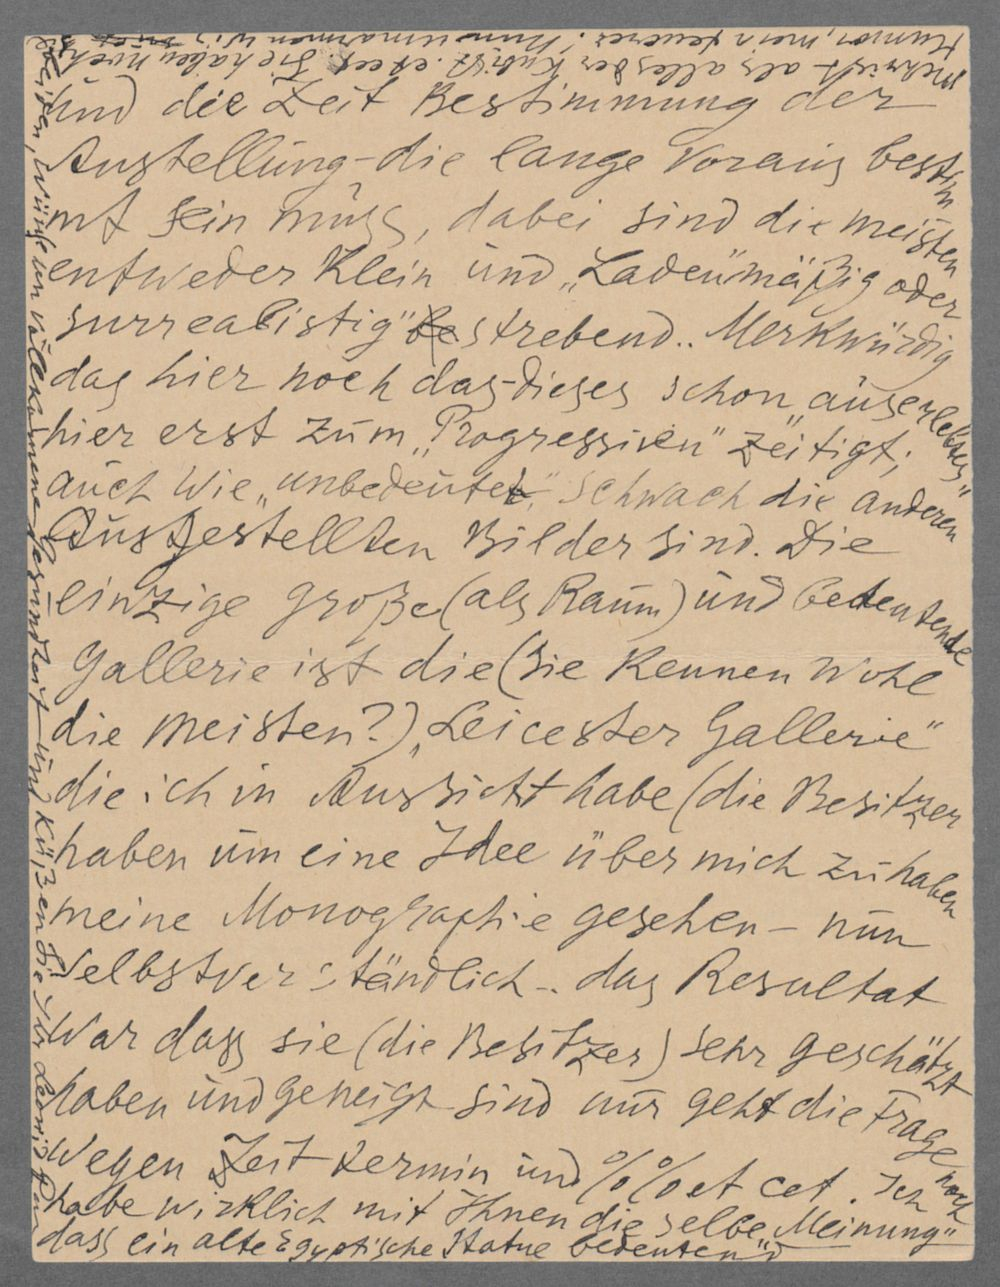 und die Zeit Bestimmung der
Austellung - die lange Voraus bestim
mt sein muss, dabei sind die meisten
entweder Klein und „Ladenmäßig oder
surrealistig" strebend.. Merkwürdig
das hier noch das-dieses schon „auserlebtes"
hier erst zum „Progressiven" zeitigt;
auch Wie „unbedeutet" schwach die anderen
Ausgestellten Bilder sind. Die
einzige große (als Raum) und bedeutende
Gallerie ist die (Sie Kennen Wohl
die meisten?) „Leicester Gallerie"
die ich in Aussicht habe (die Besitzer
haben um eine Idee über mich zu haben
meine Monographie gesehen - nun
Selbstverständlich .. das Resultat
War dass sie (die Besitzer) sehr geschätzt
haben und geneigt sind nur geht die Frage noch
Wegen Zeit-termin und %% et cet. Ich
habe wirklich mit Ihnen die selbe „Meinung"
dass ein alte Egyptische Statue bedeutend
mehr ist als alles der Kubist. et cet. Sie haben noch
Humor, mein teuerer! Nun umarmen wir
beiden, Wünschen vollkommene Gesundheit und Küßen Sie Ihr Leonid